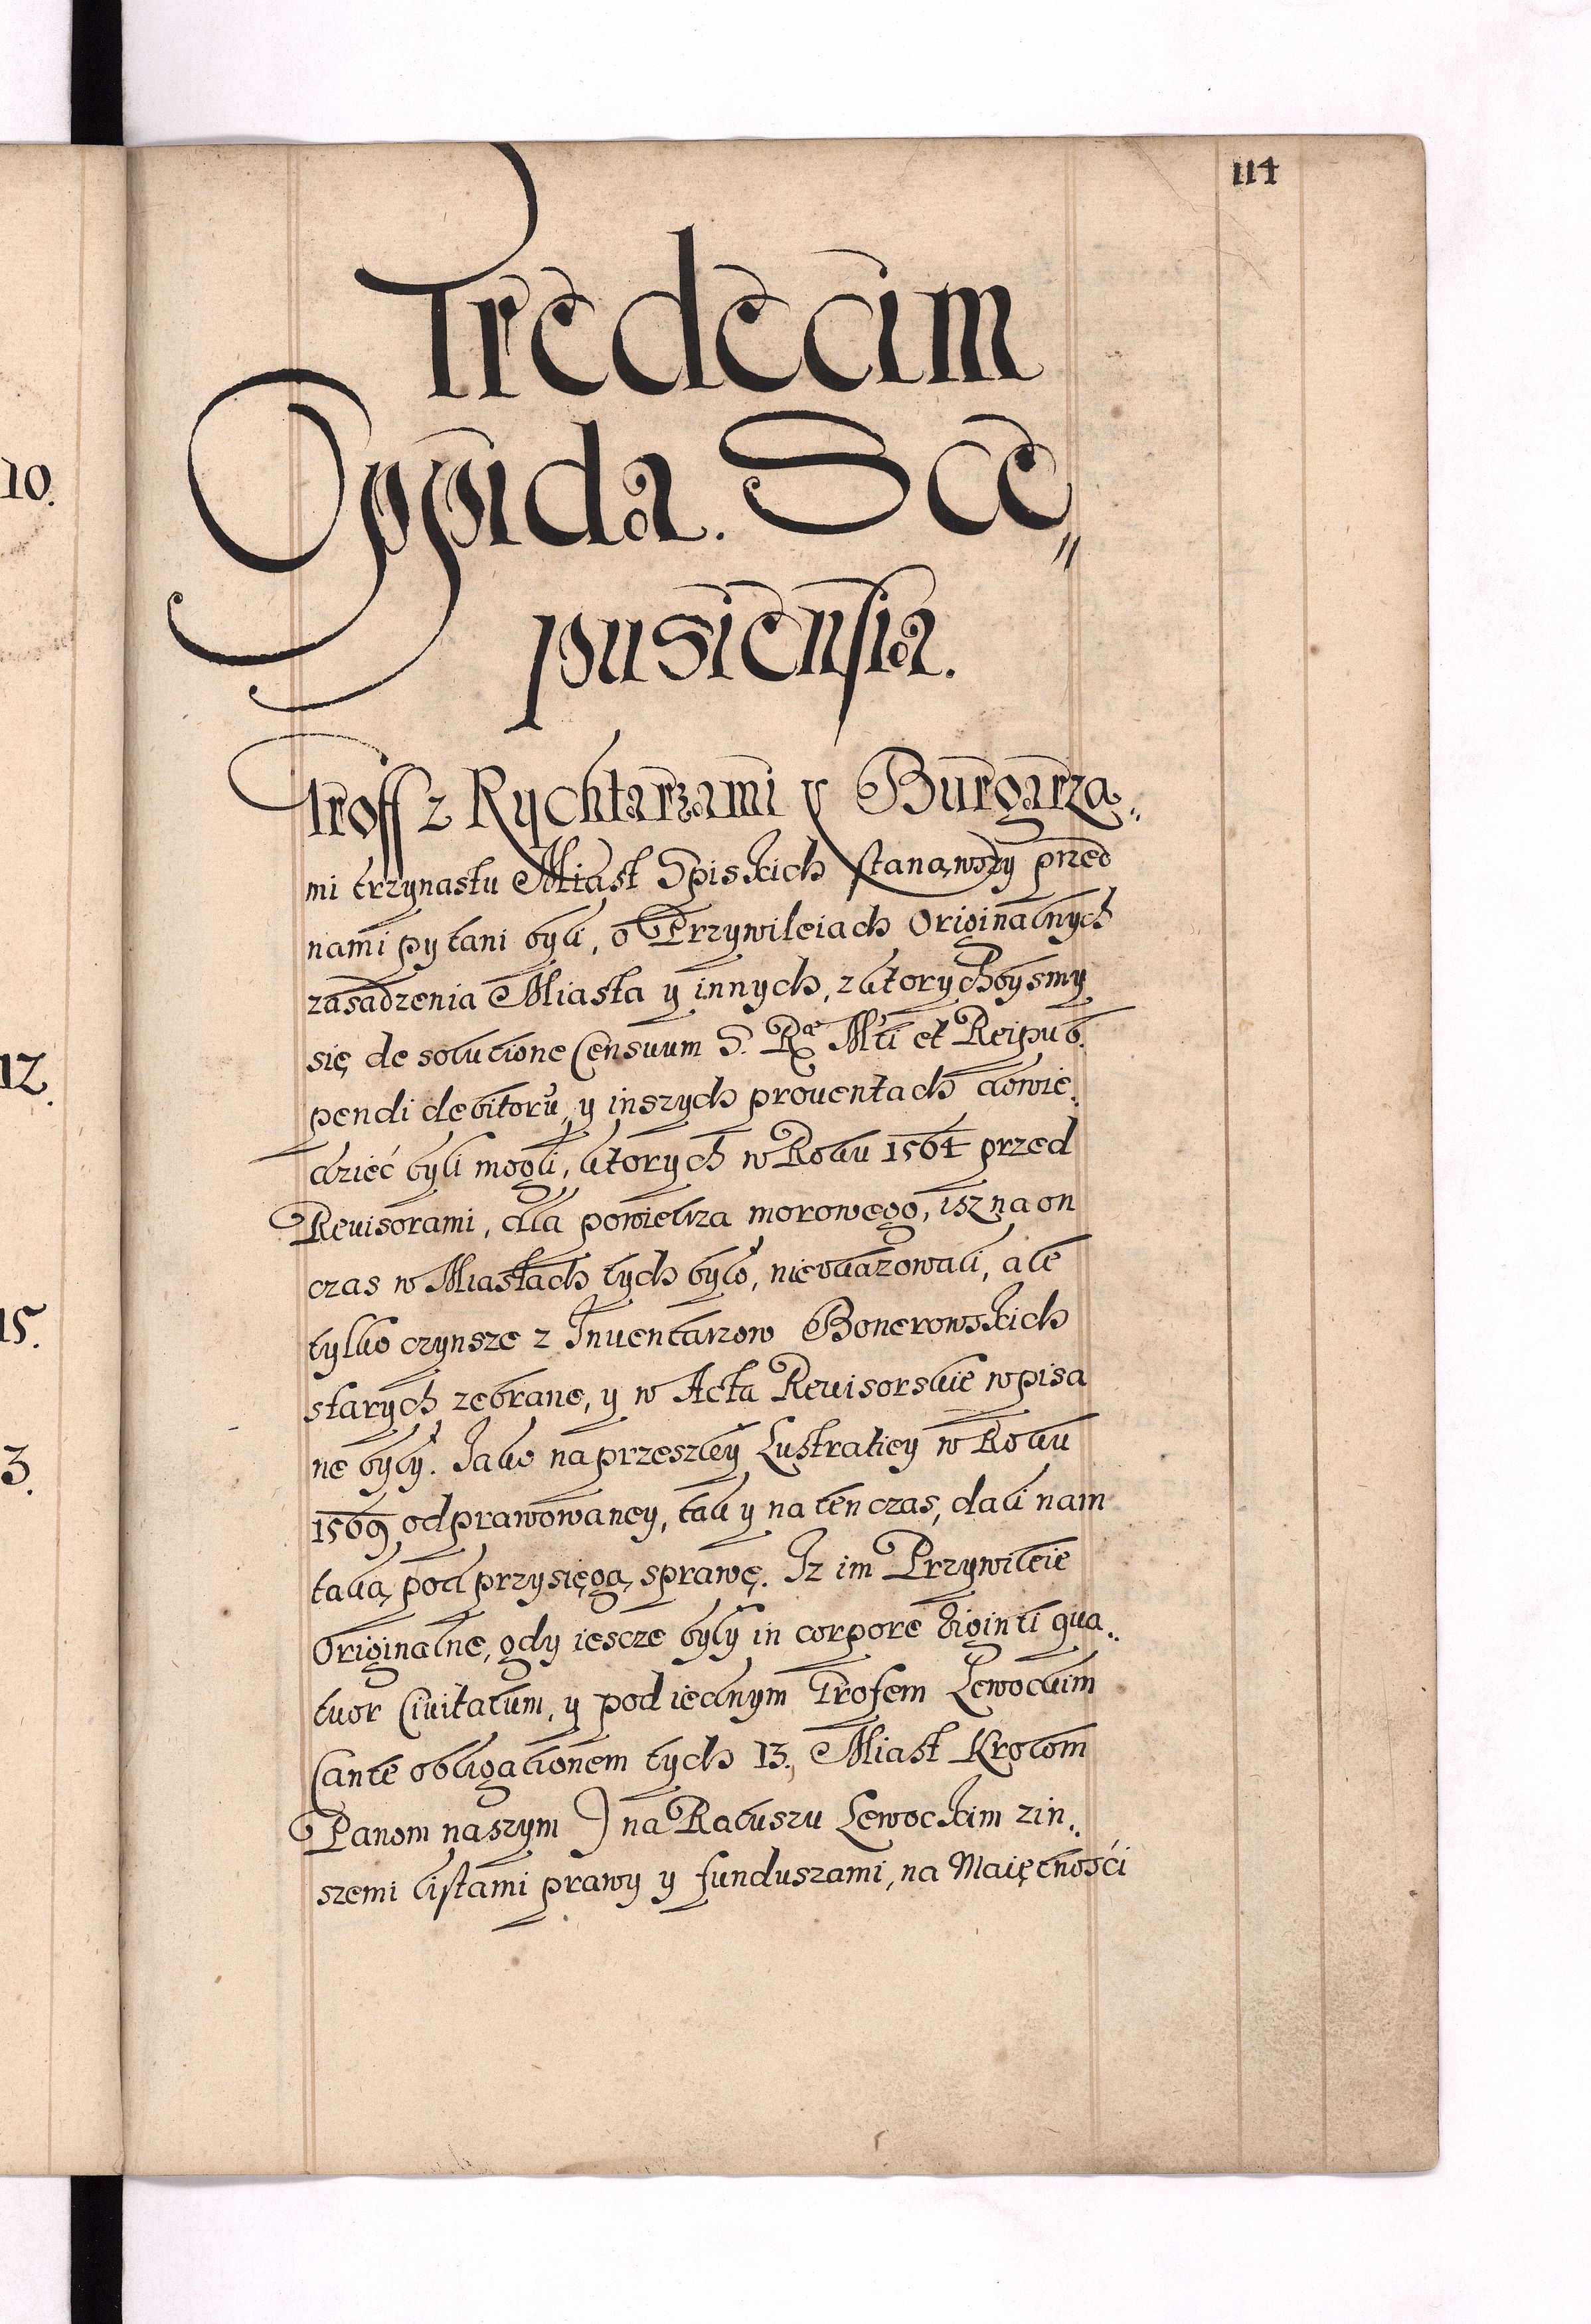 114
10.
12.
15.
3.
Tredecim
Oppida. Sce„
pusiensia.
Groff z Rychtarzami y Burgarza„
mi trzynastu Miast Spiskich stanąwszy przed
nami pytani byli, o Przywileiach Originalnych
zasadzenia Miasta y innych, z ktorychbysmy
się de solucione Censuum S. Ræ Mti et Reipub.
pendi debitorū, y inszych proventach dowie„
dzieć byli mogli, ktorych w Roku 1564 przed
Revisorami, dla powietrza morowego, isz na on
czas w Miastach tych było, nieukazowali, ale
tylko czynsze z Inventarzow Bonerowskich
starych zebrane, y w Acta Revisorskie wpisa
ne były. Jako na przeszłey Lustratiey w Roku
1569 odprawowaney, tak y na ten czas, dali nam
taką pod przysięgą sprawę. Iz im Przywileie
Originalne, gdy iescze były in corpore Viginti qua„
tuor Civitatum, y pod iednym Grofem Lewockim
(ante obligationem tych 13. Miast Krolom
Panom naszym) na Ratuszu Lewockim z in„
szemi listami prawy y funduszami, na Maiętności